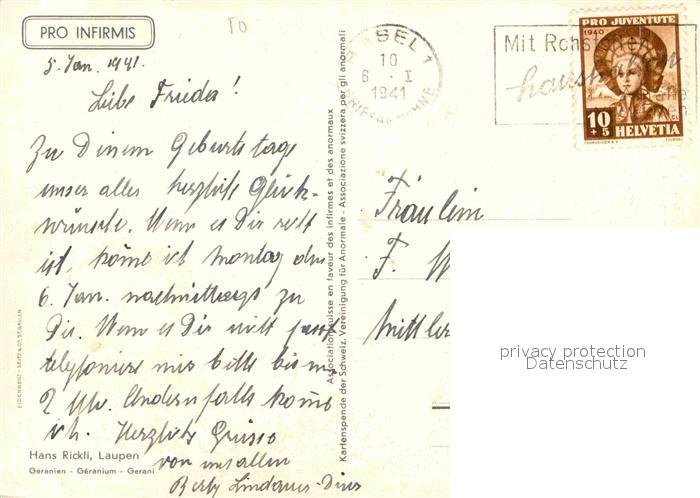 PRO INFIRMIS
5. Jan. 1941.
Liebe Frieda!
Zu Deinem Geburtstage
unser aller herzliche Glück-
wünsche. Wenn es Dir recht
ist, kome ich Montag den
6. Jan. nachmittags zu
Dir. Wenn es Dir nicht passt
telefoniere mir bitte bis um
2 Uhr. Andernfalls kome
ich. Herzliche Grüsse
von uns allen
Berty
Hans Rickli, Laupen
Geranien - Géranium - Gerani
EIDENBENZ-SEITZ & CO. ST. GALLEN
Association suisse en faveur des infirmes et des anormaux
Kartenspende der Schweiz. Vereinigung für Anormale - Associazione svizzera per gli anormali
BASEL 1
10
6. I
1941
BRIEFANNAHME
Mit
haushalten
PRO JUVENTUTE
1940
10
+5
HELVETIA
Fräulein
F. W
Mittler
privacy protection
Datenschutz